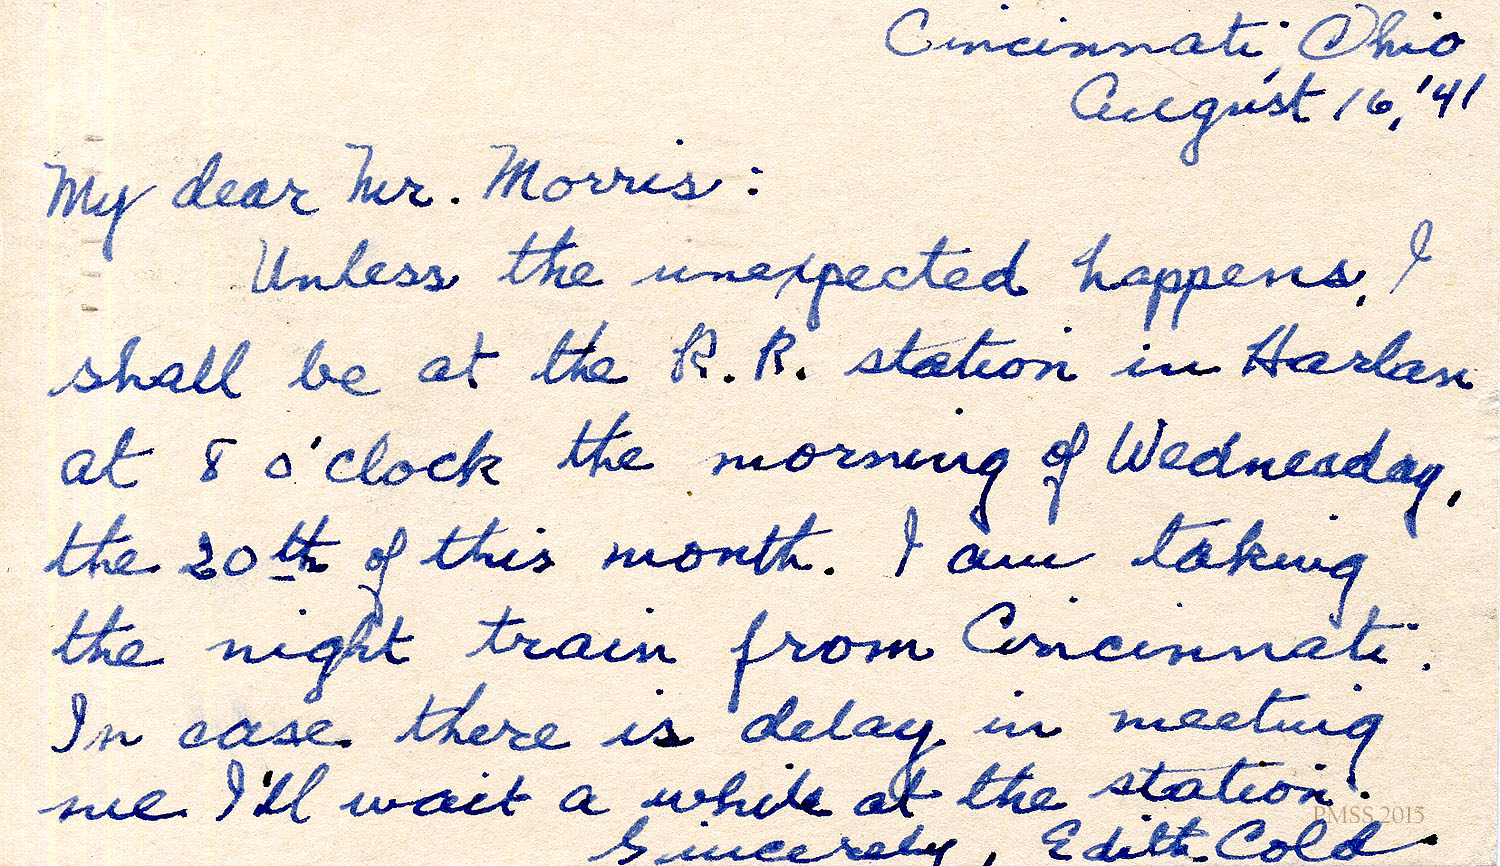 Cincinnati, Ohio
August 16, '41
My dear Mr. Morris:
Unless the unexpected happens, I
shall be at the R.R. station in Harlan
at 8 o'clock the morning of Wednesday,
the 20th of this month. I am taking
the night train from Cincinnati.
In case there is delay in meeting
me I'll wait a while at the station.
PMSS 2015
Sincerely, Edith Cold